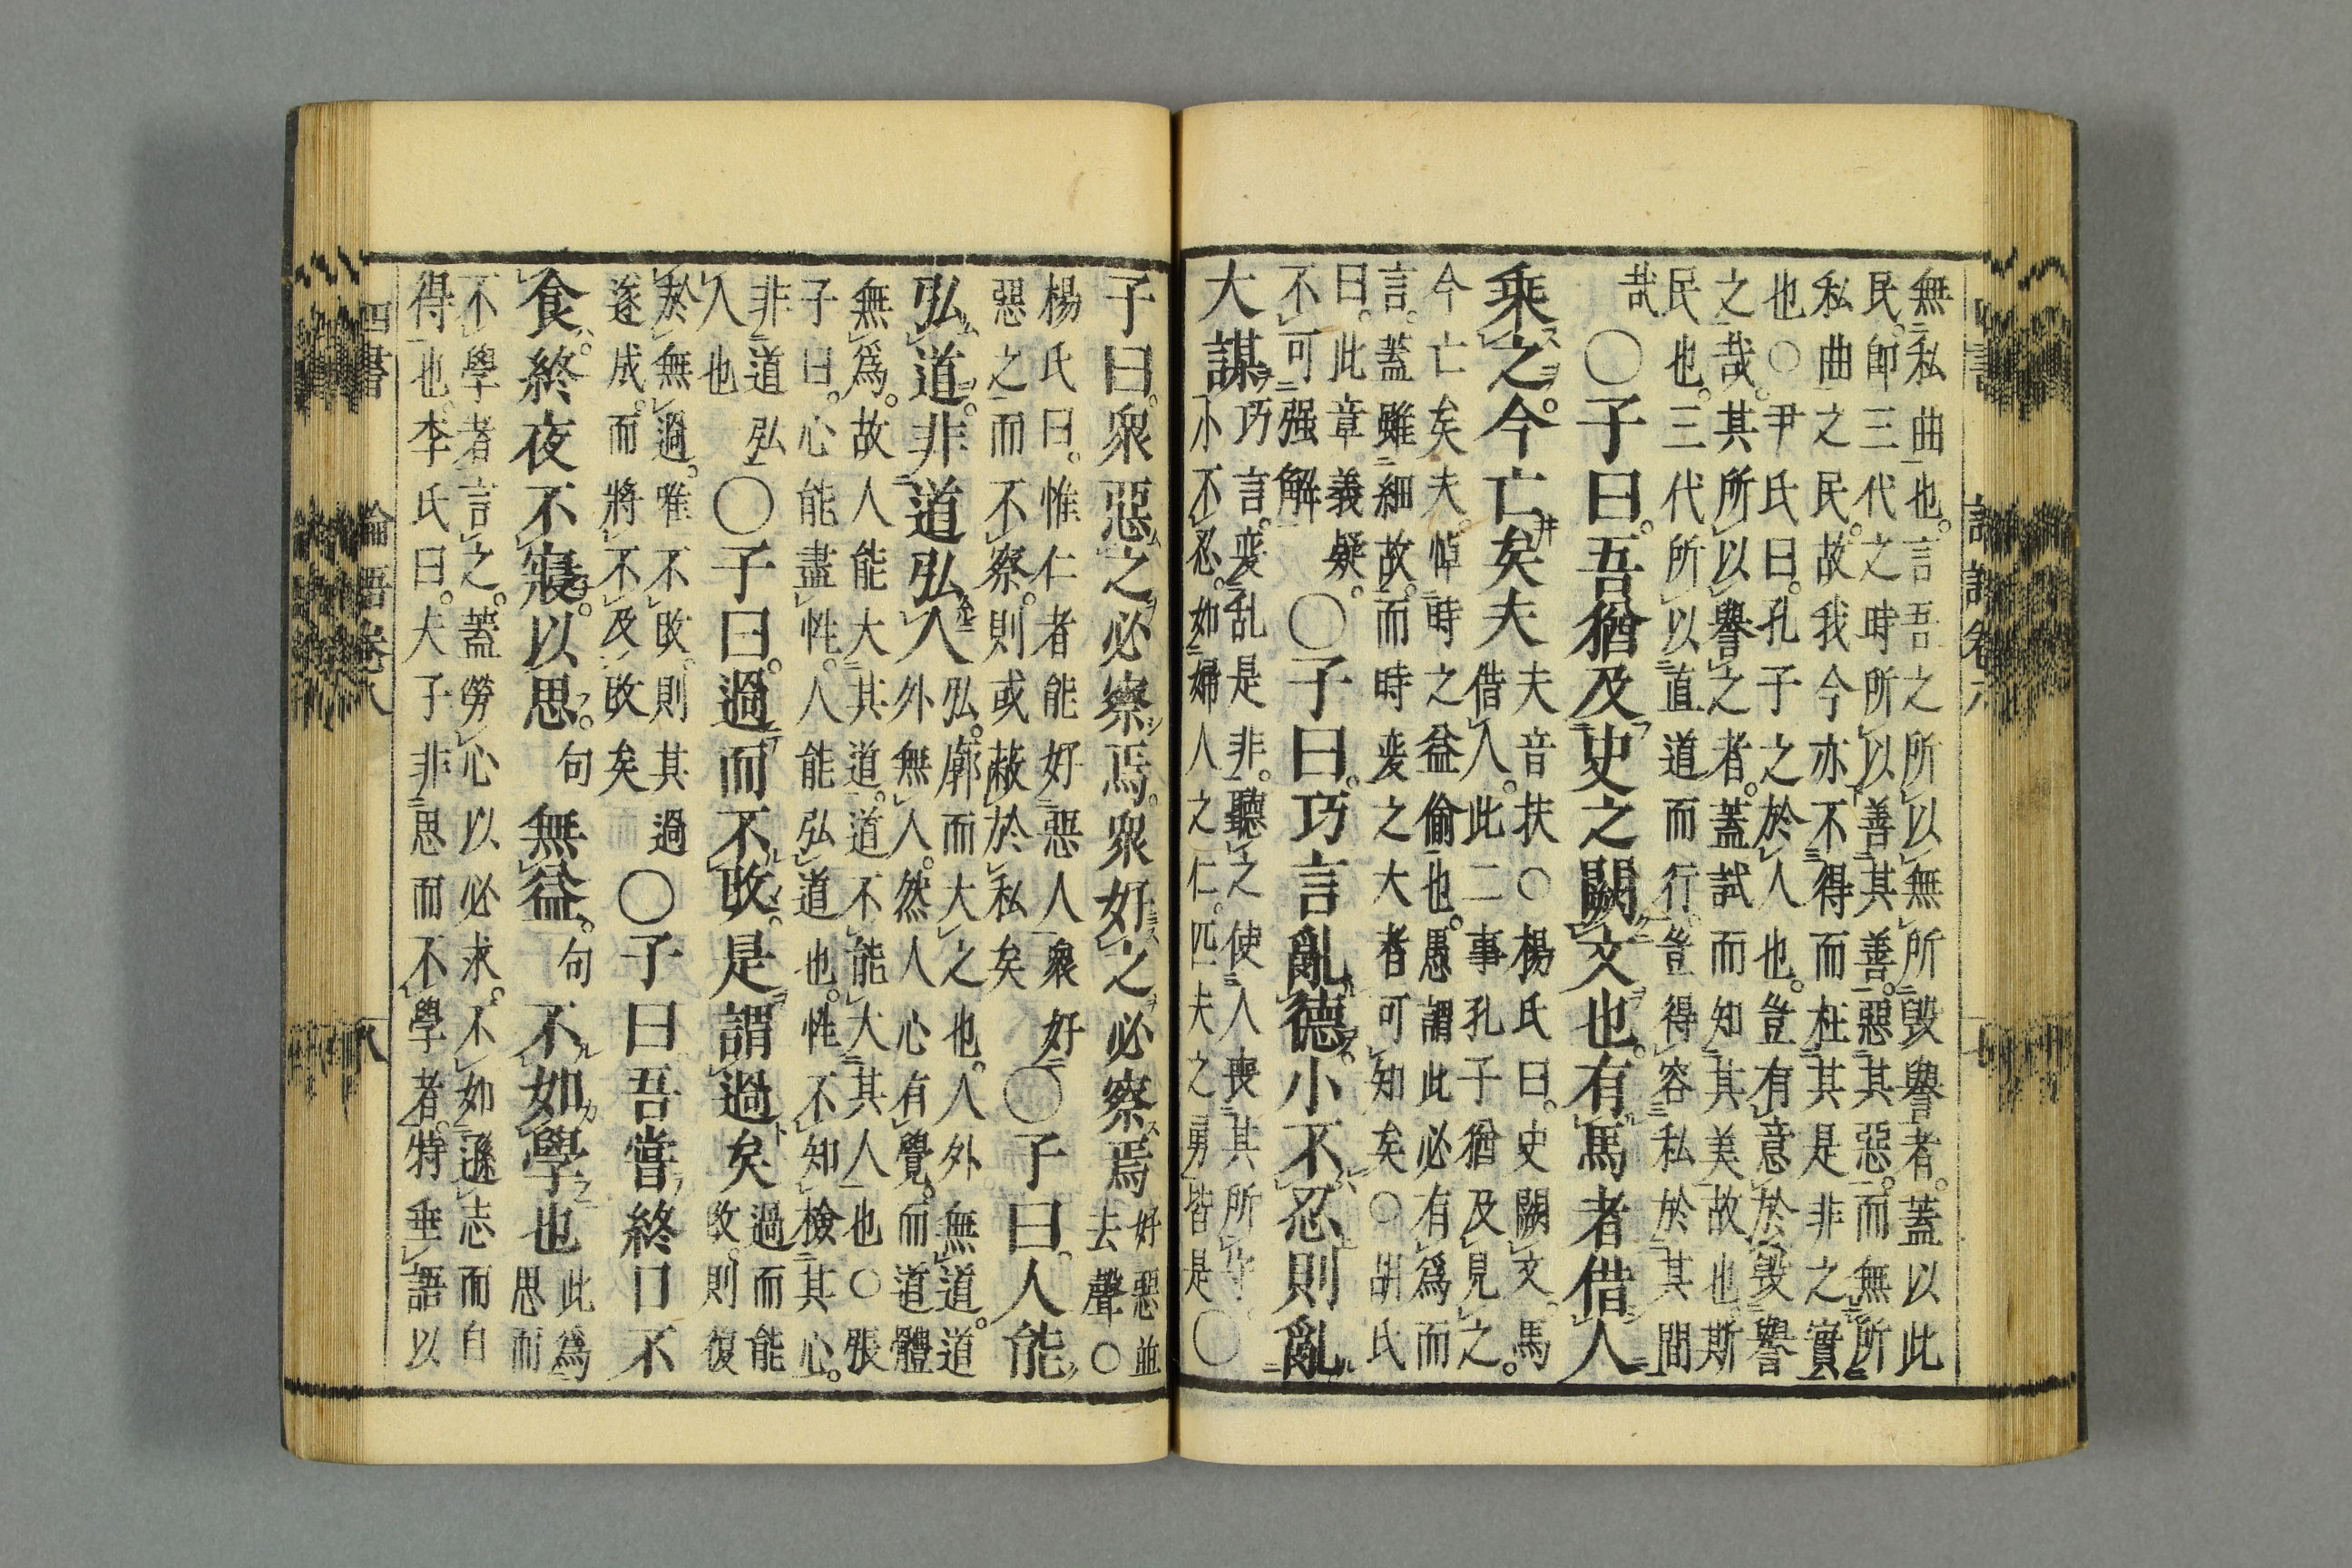 無私曲也。言吾之所以無所毀譽者。蓋以此
民。即三代之時所以善其善。惡其惡。而無所
私曲之民。故我今亦不得而枉其是非之實
也〇尹氏曰。孔子之於人也。豈有意於毀譽
之哉。其所以譽之者。蓋試而知其美故也斯
民也。三代所以直道而行。豈得容私於其間
哉
〇子曰。吾猶及史之闕文也。有馬者借人
乘之。今亡矣夫
夫音扶〇楊氏曰。史闕文。馬
借人。此二事孔子猶及見之。
今亡矣夫。悼時之益偷也。愚謂此必有爲而
言。蓋雖細故。而時変之大者可知矣〇胡氏
曰。此章義疑。
不可强解
〇子曰。巧言亂德。小不忍則亂
大謀
巧言。変乱是非。聽之使人喪其所守。
小不忍。如婦人之仁。匹夫之勇皆是〇
子曰。衆惡之必察焉。衆好之必察焉
好惡並
去聲〇
楊氏曰。惟仁者能好惡人衆好
惡之而不察。則或蔽於私矣
〇子曰。人能
弘道。非道弘人
弘。廓而大之也。人外無道。道
外無人。然人心有覺。而道體
無爲。故人能大其道。道不能大其人也〇張
子曰。心能盡性。人能弘道也。性不知檢其心。
非道弘
人也
〇子曰。過而不改。是謂過矣
過而能
改。則復
於無過。唯不改。則其過
遂成。而將不及改矣
〇子曰吾嘗終日不
食。終夜不寢。以思。
句
無益。
句
不如學也
此爲
思而
不學者言之。蓋勞心以必求。不如遜志而自
得也。李氏曰。夫子非思而不學者。特垂語以
四書 論語卷八 八